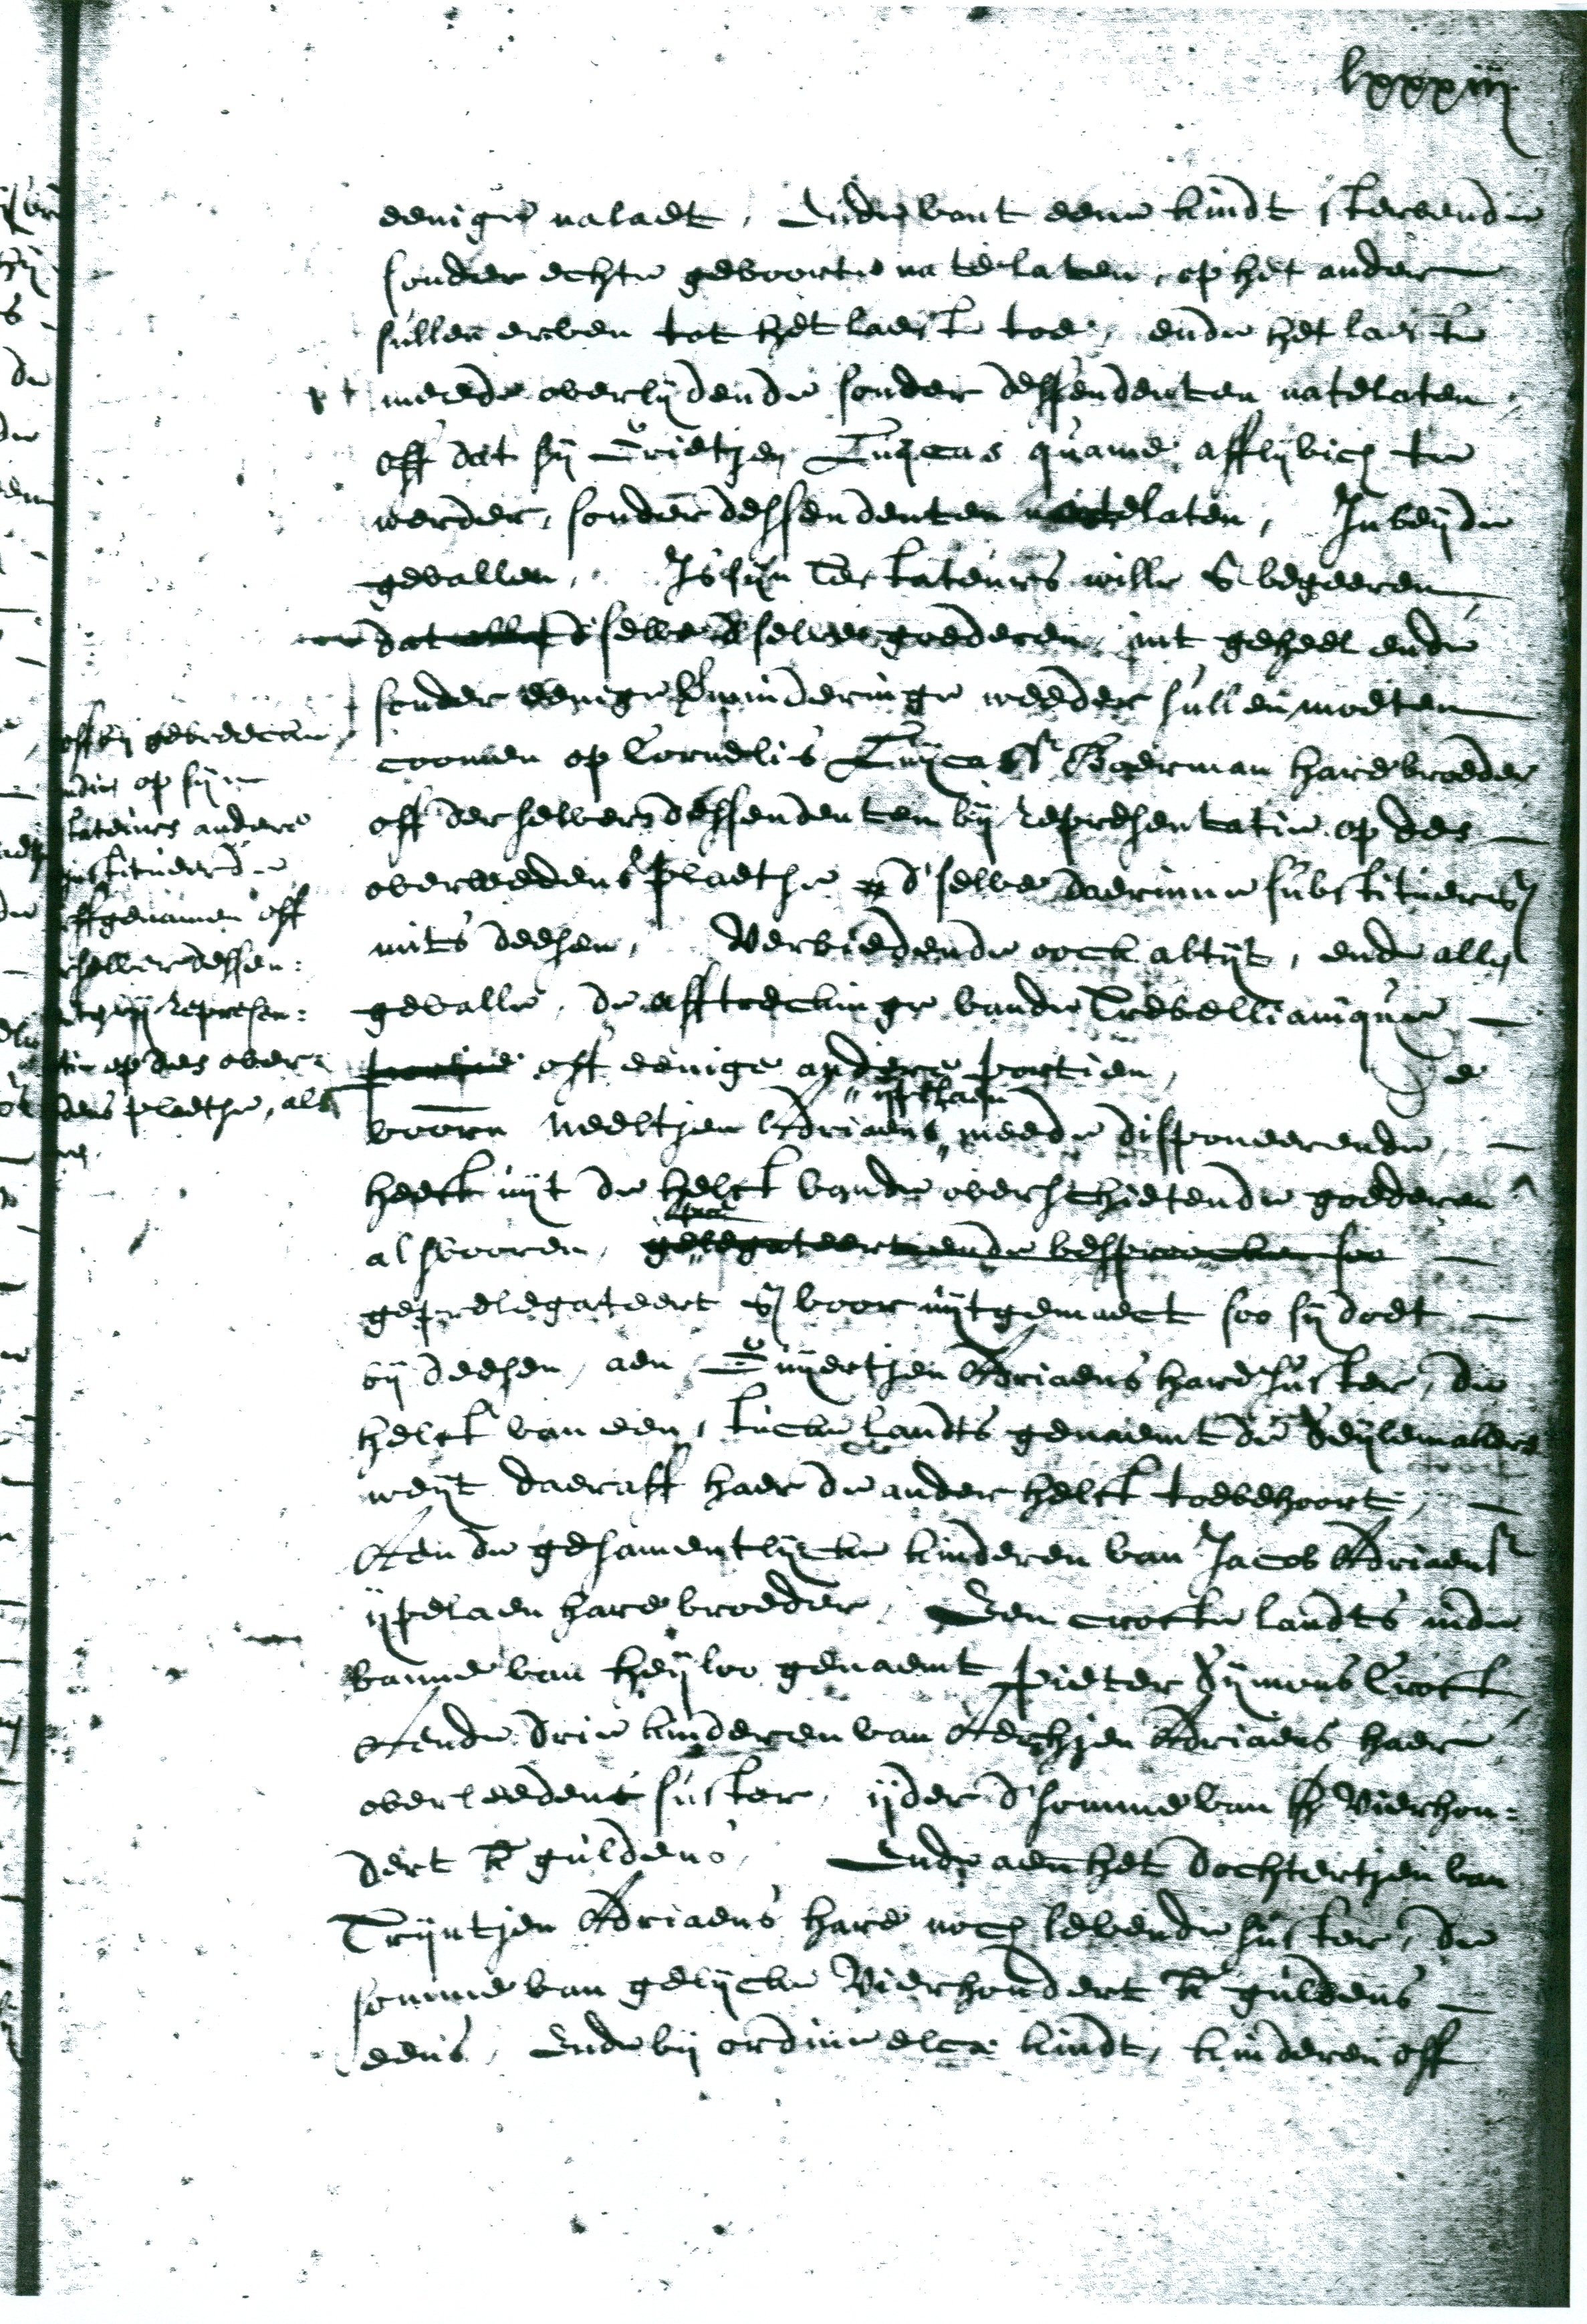 lxxxiij
eenige nalaet, Ende vant eene kindt stervende
sonder echte geboorte na te laten, op het ander
sullen erven tot het laeste toe, ende het laeste
meede overlijdende sonder dessendenten natelaten,
off dat sij Trietjen Luijcas quame afflijvich te
werden, sonder dessendenten natelaten, In beijde
gevallen, Is sijn Testateurs wille & begeeren
dat d'selve goederen, int geheel ende
sonder eenige verminderinge weeder sullen moeten
coomen op Cornelis Luijcasz Boerman hare broeder
off derselver dessendenten bij representatie op des
overleedens plaetse d'selve daerinne substitueren
mits deesen, Verbiedende oock altijt, ende alle
gevalle, de afftreckinge vande Trebellianique
portie off eenige andere portien, De
voorn Neeltjen Adriaens ijpelaen meede disponeerende,
heeft uijt de helft vande overschietende goederen
als vooren, gelegateert ende besproocken soo
geprelegateert & voor uijtgemaect soo sij doet
bij deesen, aen Duijertjen Adriaens hare suster, de
helft van een stucke landts genaemt de Seijlemakers
weijt daeraff haer de ander helft toebehoort,
Aen de gesamentlijcke kinderen van Jacob Adriaensz
ijpelaen hare broeder, Een crofte landts inde
banne van Heijloo genaemt Pieter Sijmons Croft
Aende drie kinderen van Aechjen Adriaens haer
overleedene suster, ijder d'somme van vierhon=
dert k guldens, Ende aen het dochtertjen van
Trijntjen Adriaens hare noch levende suster, de
somme van gelijcke Vierhondert k guldens
eens, Ende bij ordine elcx kindt, kinderen off
off bij gebreecke
op sijn
tateurs andere
institueerde
erffgenamen off
derselver dessen:
bij represen:
tie op des over=
dens plaetse, als